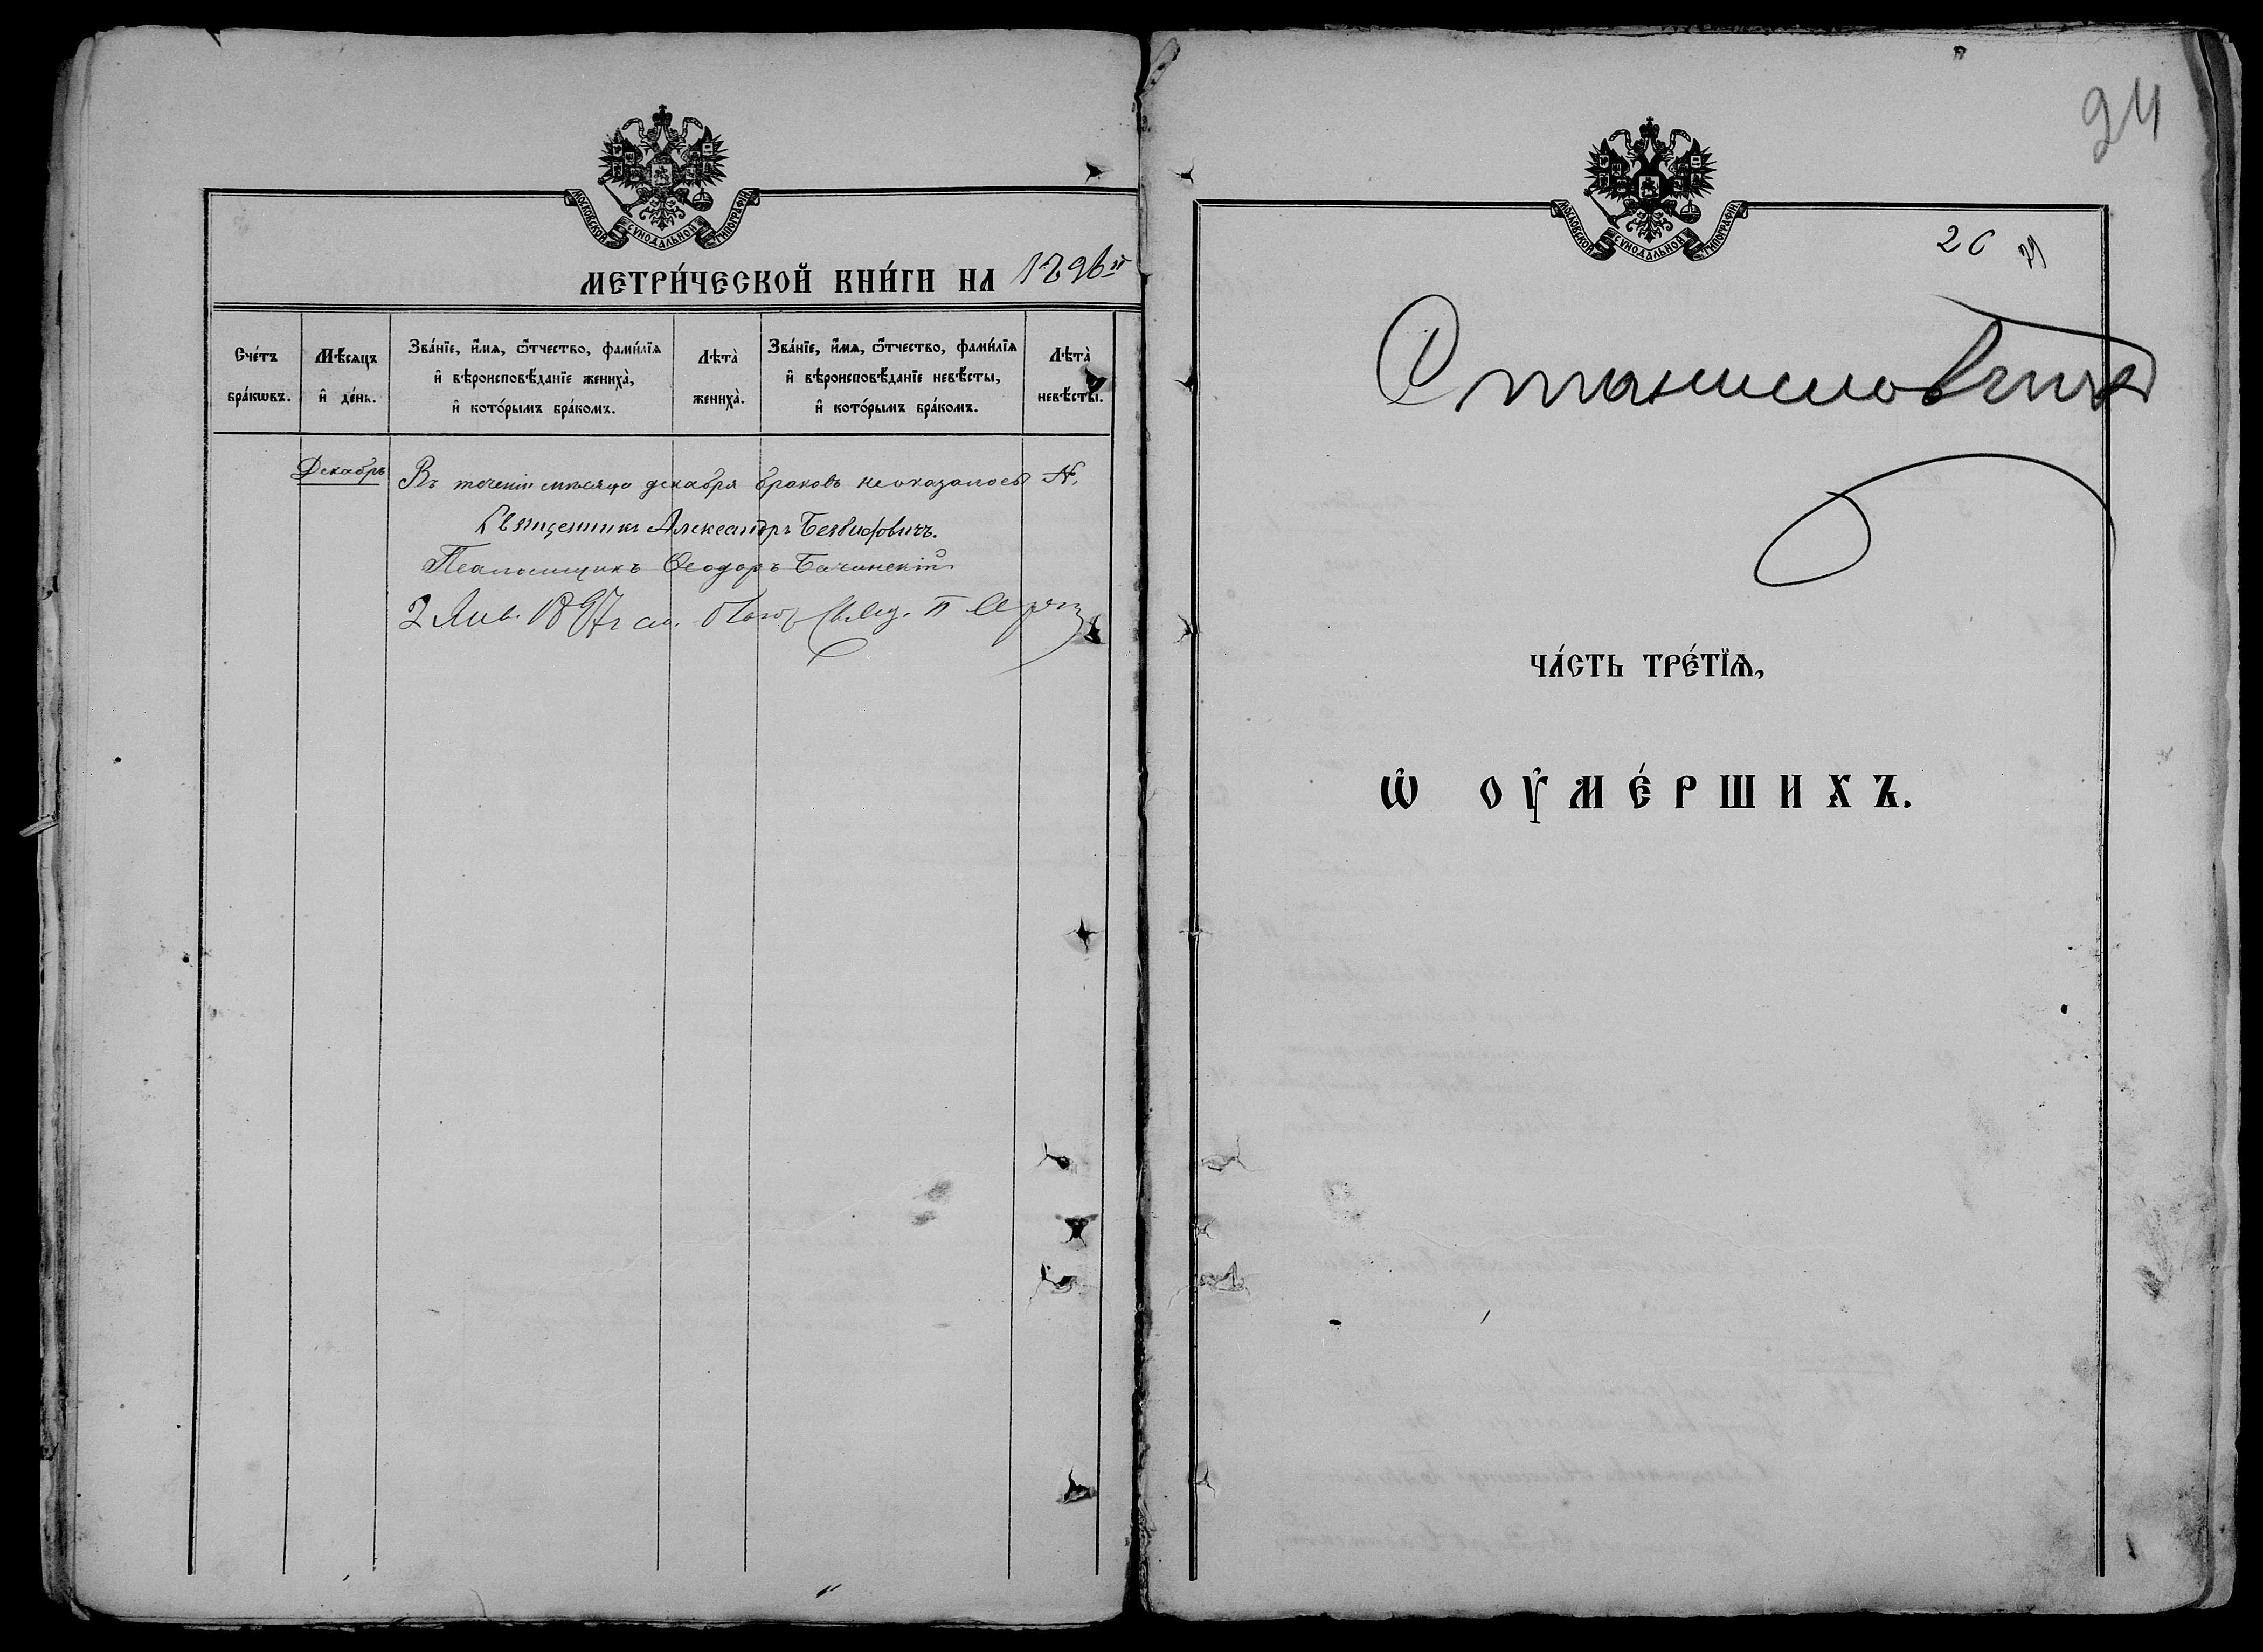 МОСКОВСКОЙ СѴНОДАЛЬНОЙ ТИПОГРАФІИ
МЕТРИ́ЧЕСКОЙ КНИ́ГИ НА 1896й
Сче́тъ бра́кѡвъ.
Мѣ́сѧцъ и҆ де́нь.
Зва́нїе, и҆́мѧ, ѻ҆́тчество, фами́лїѧ
и҆ вѣроисповѣ́данїе жениха̀,
и҆ кото́рымъ бра́комъ.
Лѣта̀ жениха̀.
Зва́нїе, и҆́мѧ, ѻ҆́тчество, фами́лїѧ
и҆ вѣроисповѣ́данїе невѣ́сты,
и҆ кото́рымъ бра́комъ.
Лѣта̀ невѣ́сты.
Декабрь
Въ теченіи мѣсяца декабря браковъ неоказалось
Священникъ Александръ
Псаломщикъ Ѳеодоръ Бачинскій
2 Янв. 1897г
94
МОСКОВСКОЙ СѴНОДАЛЬНОЙ ТИПОГРАФІИ
26
ЧА́СТЬ ТРЕ́ТЇѦ,
Ѡ҆ ОУ҆МЕ́РШИХЪ.